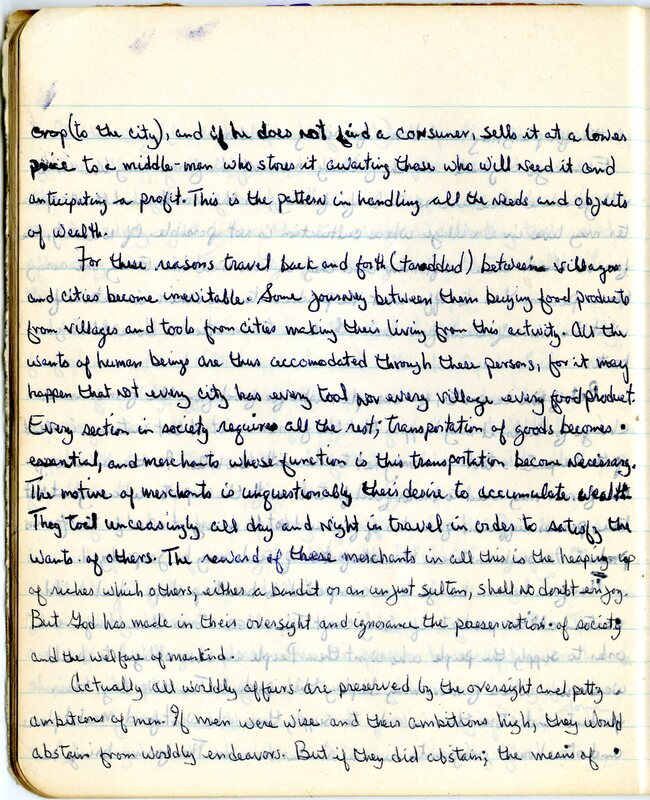 crop (to the city), and if he does not find a consumer, sells it at a lower
price to a middle-man who stores it awaiting those who will need it and
anticipating a profit. This is the pattern in handling all the needs and objects
of wealth.
For these reasons travel back and forth (taraddud) between villages
and cities become inevitable. Some journey between them buying food products
from villages and tools from cities making their living from this activity. All the
wants of human beings are thus accomodated through these persons, for it may
happen that not every city has every tool nor every village every food product.
Every section in society requires all the rest; transportation of goods becomes
essential, and merchants whose function is this transportation become necessary.
The motive of merchants is unquestionably their desire to accumulate wealth.
They toil unceasingly all day and night in travel in order to satisfy the
wants of others. The reward of these merchants in all this is the heaping up
of riches which others, either a bandit or an unjust sultan, shall no doubt enjoy.
But God has made in their oversight and ignorance the preservation of society
and the welfare of mankind.
Actually all worldly affairs are preserved by the oversight and petty
ambitions of men. If men were wise and their ambitions high, they would
abstain from worldly endeavors. But if they did abstain; the means of